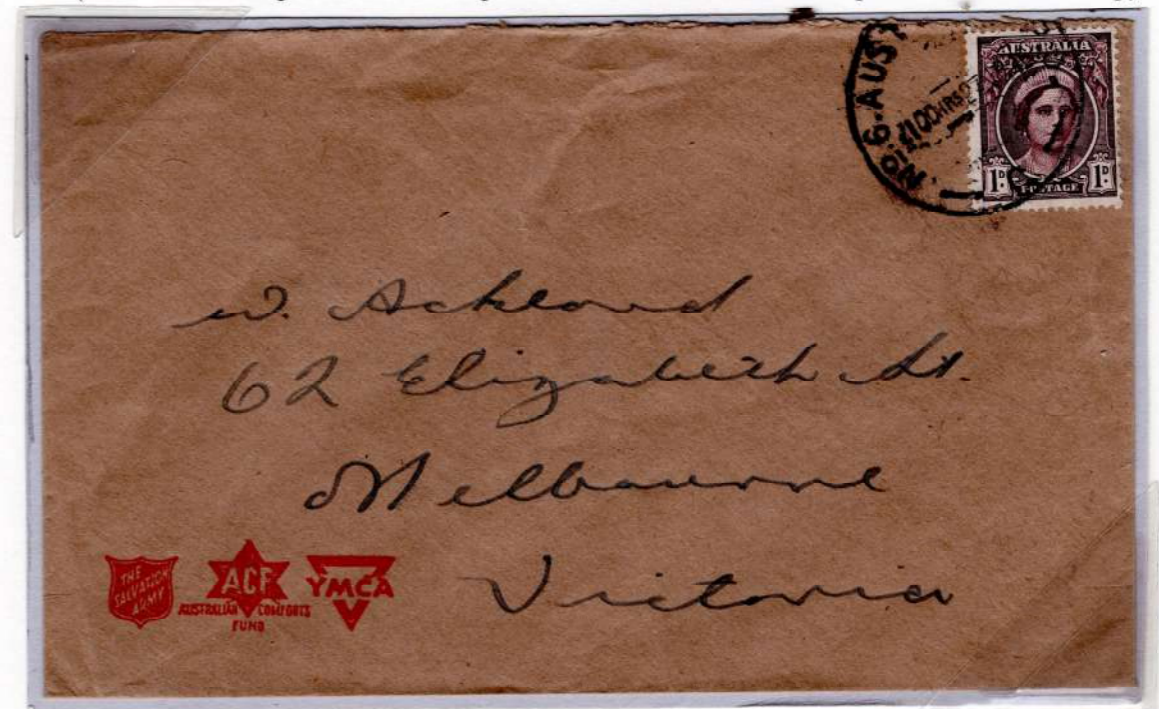 No. 6. AUST
1100HRS
AUSTRALIA
1D. POSTAGE 1D.
W. Ackland
62 Elizabeth St.
Melbourne
Victoria
THE
SALVATION
ARMY
ACF
AUSTRALIAN COMFORTS
FUND
YMCA